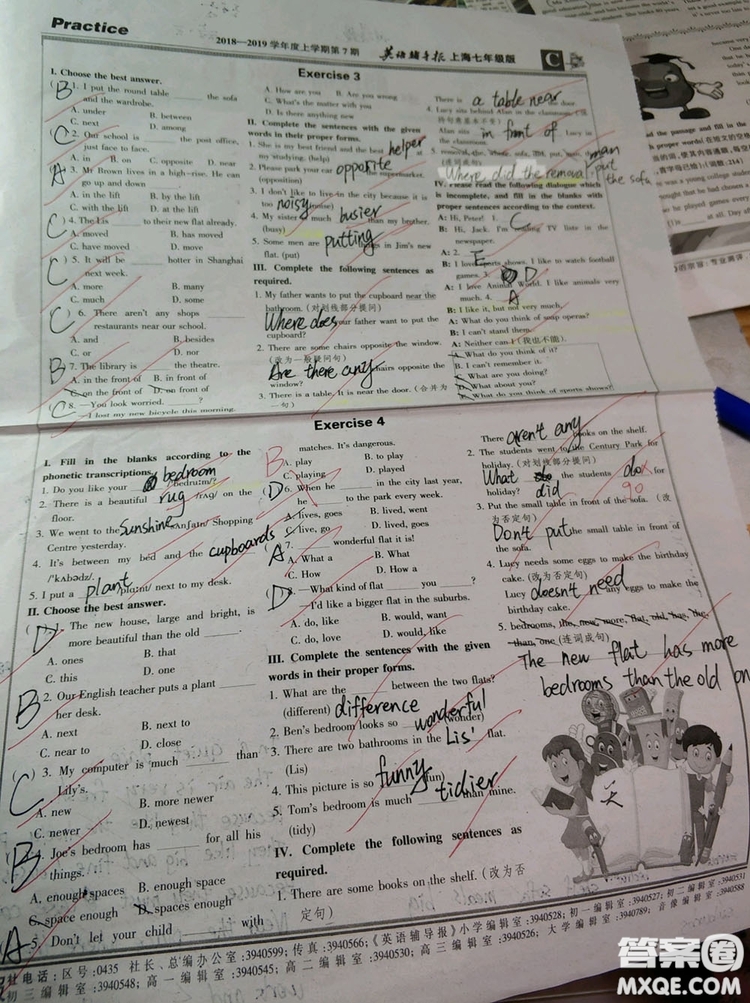 Practice
2018—2019 学年度上学期第 7 期
英语辅导报 上海七年级版
C
Exercise 3
I. Choose the best answer.
B
( ) 1. I put the round table ____ the sofa
and the wardrobe.
A. under B. between
C. next D. among
C
( ) 2. Our school is ____ the post office,
just face to face.
A. in B. on C. opposite D. near
A
3. Mr Brown lives in a high-rise. He can
go up and down
A. in the lift B. by the lift
C. with the lift D. at the lift
C
( ) 4. The Lis ____ to their new flat already.
A. moved B. has moved
C. have moved D. move
C
( ) 5. It will be ____ hotter in Shanghai
next week.
A. more B. many
C. much D. some
C
( ) 6. There aren't any shops ____
restaurants near our school.
A. and B. besides
C. or D. nor
B
7. The library is ____ the theatre.
A. in the front of B. in front of
C. on the front of D. on front of
C
8. —You look worried. ____ ?
—I lost my new bicycle this morning.
A. How are you B. Are you wrong
C. What's the matter with you
D. Is there anything new
II. Complete the sentences with the given
words in their proper forms.
1. She is my best friend and the best helper
my studying. (help)
2. Please park your car opposite supermarket.
(opposition)
3. I don't like to live in the city because it is
too noisy
4. My sister much busier than my brother.
(busy)
5. Some men are putting in Jim's new
flat. (put)
III. Complete the following sentences as
required.
1. My father wants to put the cupboard near the
bathroom. (对划线部分提问)
Where does your father want to put the
cupboard?
2. There are some chairs opposite the window.
(改为一般疑问句)
Are there any chairs opposite the
window?
3. There is a table. It is near the door. (合并为
一句)
There is a table near the door.
4. Lucy sits behind Alan in the classroom.
Alan sits in front of Lucy in
the classroom.
man
Where did the removal put
the sofa
IV. Please read the following dialogue which
is incomplete, and fill in the blanks with
proper sentences according to the context.
A: Hi, Peter! 1. C
B: Hi, Jack. I'm reading TV lists in the
newspaper.
A: 2. E
B: I love sports shows. I like to watch football
games. 3. D
A: I love Animal World. I like animals very
much. 4. A
B: I like it, but not very much.
A: What do you think of soap operas?
B: I can't stand them.
A: Neither can I (我也不能).
A. What do you think of it?
B. I can't remember it.
C. What are you doing?
D. What about you?
E. What do you think of sports shows?
Exercise 4
I. Fill in the blanks according to the
phonetic transcriptions.
1. Do you like your bedroom /'bedruːm/?
2. There is a beautiful rug /rʌg/ on the
floor.
3. We went to the Sunshine /'sʌnʃaɪn/ Shopping
Centre yesterday.
4. It's between my bed and the cupboards
/'kʌbədz/.
5. I put a plant /plɑːnt/ next to my desk.
II. Choose the best answer.
D
1. The new house, large and bright, is
more beautiful than the old ____.
A. ones B. that
C. this D. one
B
2. Our English teacher puts a plant ____
her desk.
A. next B. next to
C. near to D. close
C
( ) 3. My computer is much ____ than
Lily's.
A. new B. more newer
C. newer D. newest
B
4. Joe's bedroom has ____ for all his
things.
A. enough spaces B. enough space
C. space enough D. spaces enough
A
5. Don't let your child ____ with
matches. It's dangerous.
B
A. play B. to play
C. playing D. played
(D) 6. When he ____ in the city last year,
he ____ to the park every week.
A. lives, goes B. lived, went
C. live, go D. lived, goes
A
7. ____ wonderful flat it is!
A. What a B. What
C. How D. How a
D
—What kind of flat ____ you ____ ?
—I'd like a bigger flat in the suburbs.
A. do, like B. would, want
C. do, love D. would, like
III. Complete the sentences with the given
words in their proper forms.
1. What are the ____ between the two flats?
(different) difference
2. Ben's bedroom looks so wonderful (wonder)
3. There are two bathrooms in the Lis' flat.
(Lis)
4. This picture is so funny (fun)
5. Tom's bedroom is much tidier than mine.
(tidy)
IV. Complete the following sentences as
required.
1. There are some books on the shelf. (改为否
定句)
There aren't any books on the shelf.
2. The students went to the Century Park for
holiday. (对划线部分提问)
What did the students do for
holiday?
90
3. Put the small table in front of the sofa. (改
为否定句)
Don't put the small table in front of
the sofa.
4. Lucy needs some eggs to make the birthday
cake. (改为否定句)
Lucy doesn't need any eggs to make the
birthday cake.
5. bedrooms, the, new, more, flat, old, has, the,
than, one (连词成句)
The new flat has more
bedrooms than the old on
社电话:区号:0435 社长、总编办公室:3940599;传真:3940566;《英语辅导报》小学编辑室:3940528;初一编辑室:3940527;初二编辑室:3940531
初三编辑室:3940548;高一编辑室:3940545;高二编辑室:3940530;高三编辑室:3940526;大学编辑室:3940789;音像编辑部:3940588
答案圈
MXQE.COM